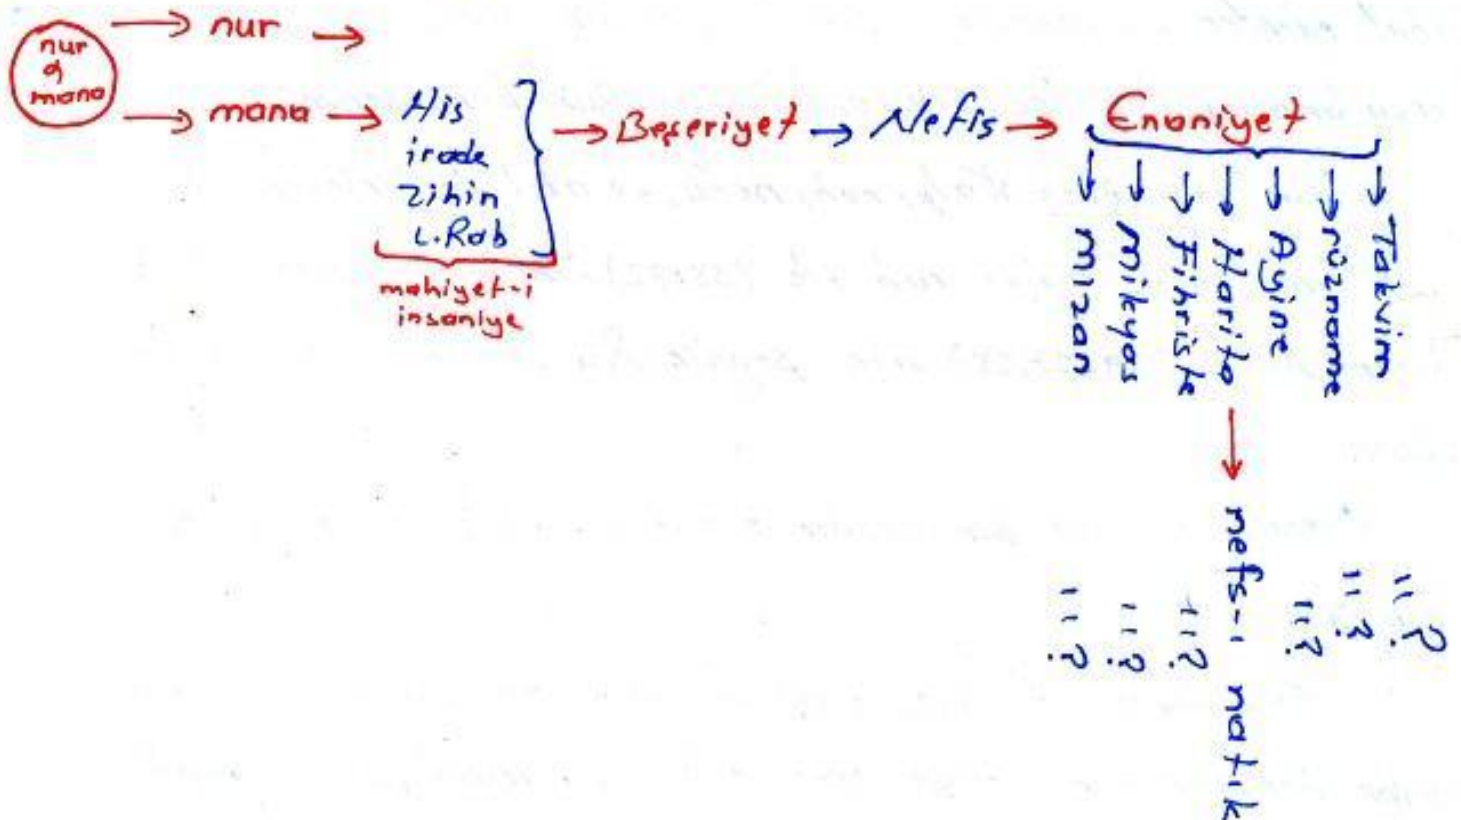 nur
&
mana
nur
mana
His
irade
zihin
L.Rab
mahiyet-i
insaniye
Beşeriyet
Nefis
Enaniyet
mizan
mikyas
Fihriste
Harita
Ayine
rûzname
Takvim
nefs-i natık
"?
"?
"?
"?
"?
"?